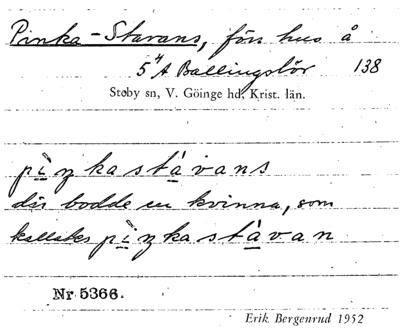 Pinka-Stavans, förr hus å
5⁴A Ballingslöv 138
Stoby sn, V. Göinge hd, Krist. län.
pìŋkastávans
där bodde en kvinna, som
kallades pìŋkastávan
Nr 5366.
Erik Bergenrud 1952